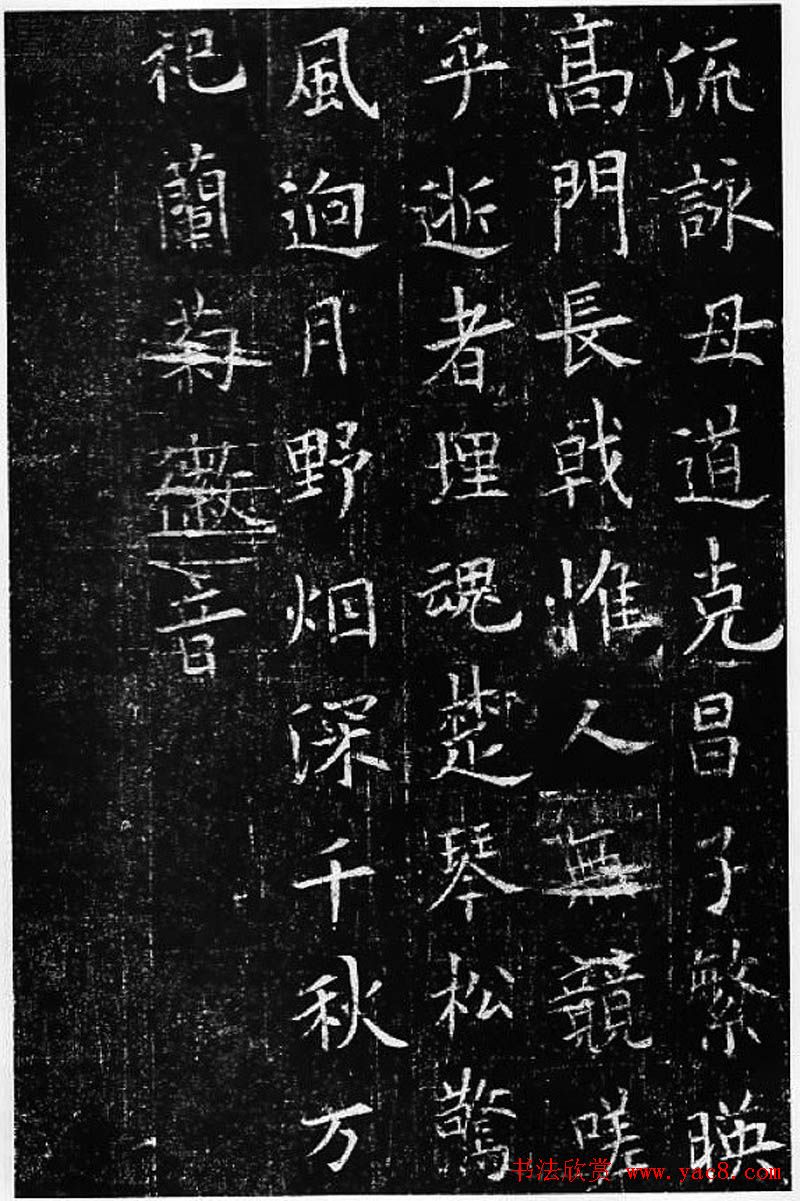 流詠母道克昌子繁暎
髙門長戟惟人無競嗟
乎逝者埋魂楚琴松驚
風逈月野烟深千秋万
祀蘭菊徽音
书法欣赏 www.yac8.com